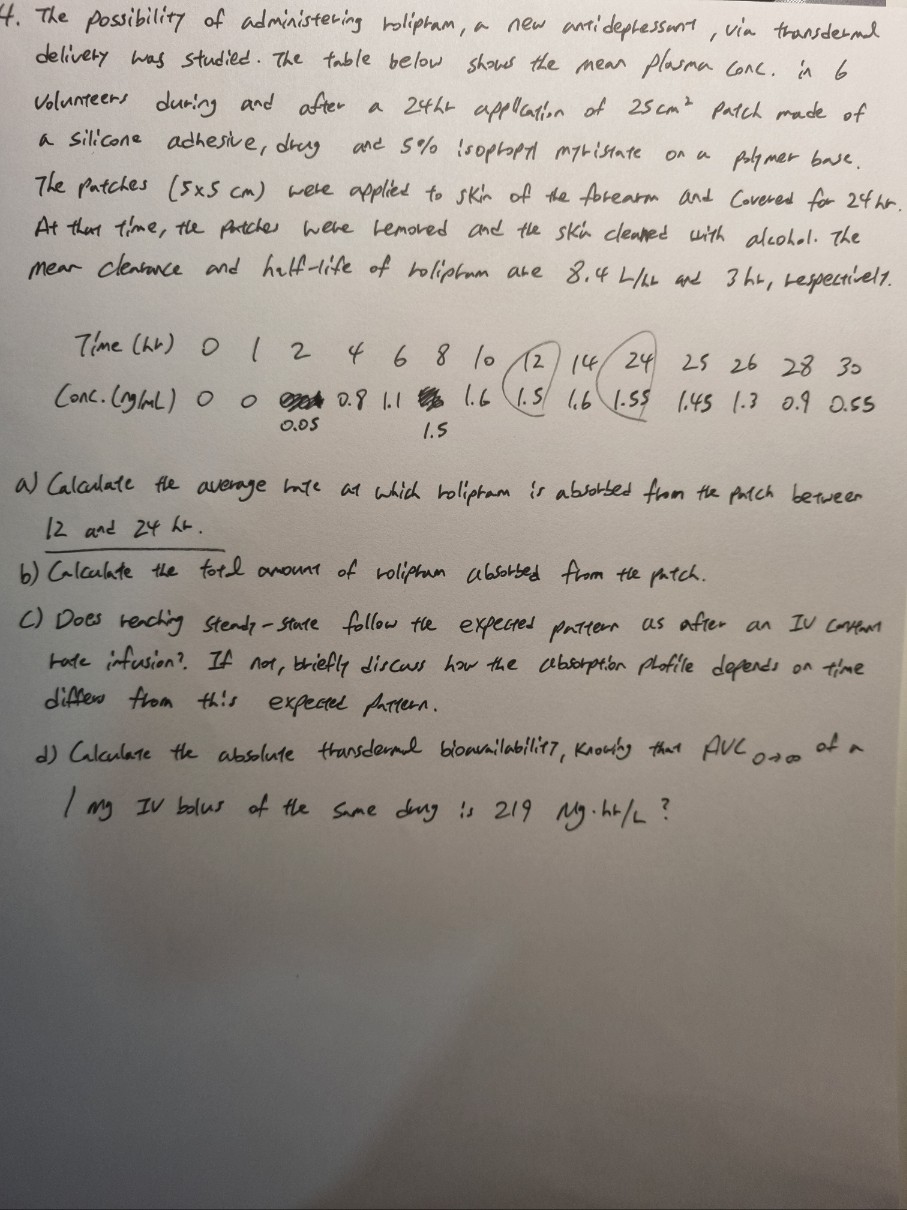 4. The possibility of administering rolipram, a new antidepressant, via transdermal
delivery was studied. The table below shows the mean plasma conc. in 6
volunteers during and after a 24hr application of 25cm² patch made of
a silicone adhesive, drug and 5% isopropyl myristate on a polymer base.
The patches (5x5 cm) were applied to skin of the forearm and covered for 24 hr.
At that time, the patches were removed and the skin cleaned with alcohol. The
mean clearance and half-life of rolipram are 8.4 L/hr and 3 hr, respectively.
Time (hr) 0 1 2 4 6 8 10 12 14 24 25 26 28 30
Conc. (ng/mL) 0 0 0.8 1.1 1.6 1.5 1.6 1.55 1.45 1.3 0.9 0.55
0.05 1.5
a) Calculate the average rate at which rolipram is absorbed from the patch between
12 and 24 hr.
b) Calculate the total amount of rolipram absorbed from the patch.
c) Does reaching steady-state follow the expected pattern as after an IV constant
rate infusion?. If not, briefly discuss how the absorption profile depends on time
differs from this expected pattern.
d) Calculate the absolute transdermal bioavailability, knowing that AUC 0→∞ of a
1 mg IV bolus of the same drug is 219 Mg·hr/L ?